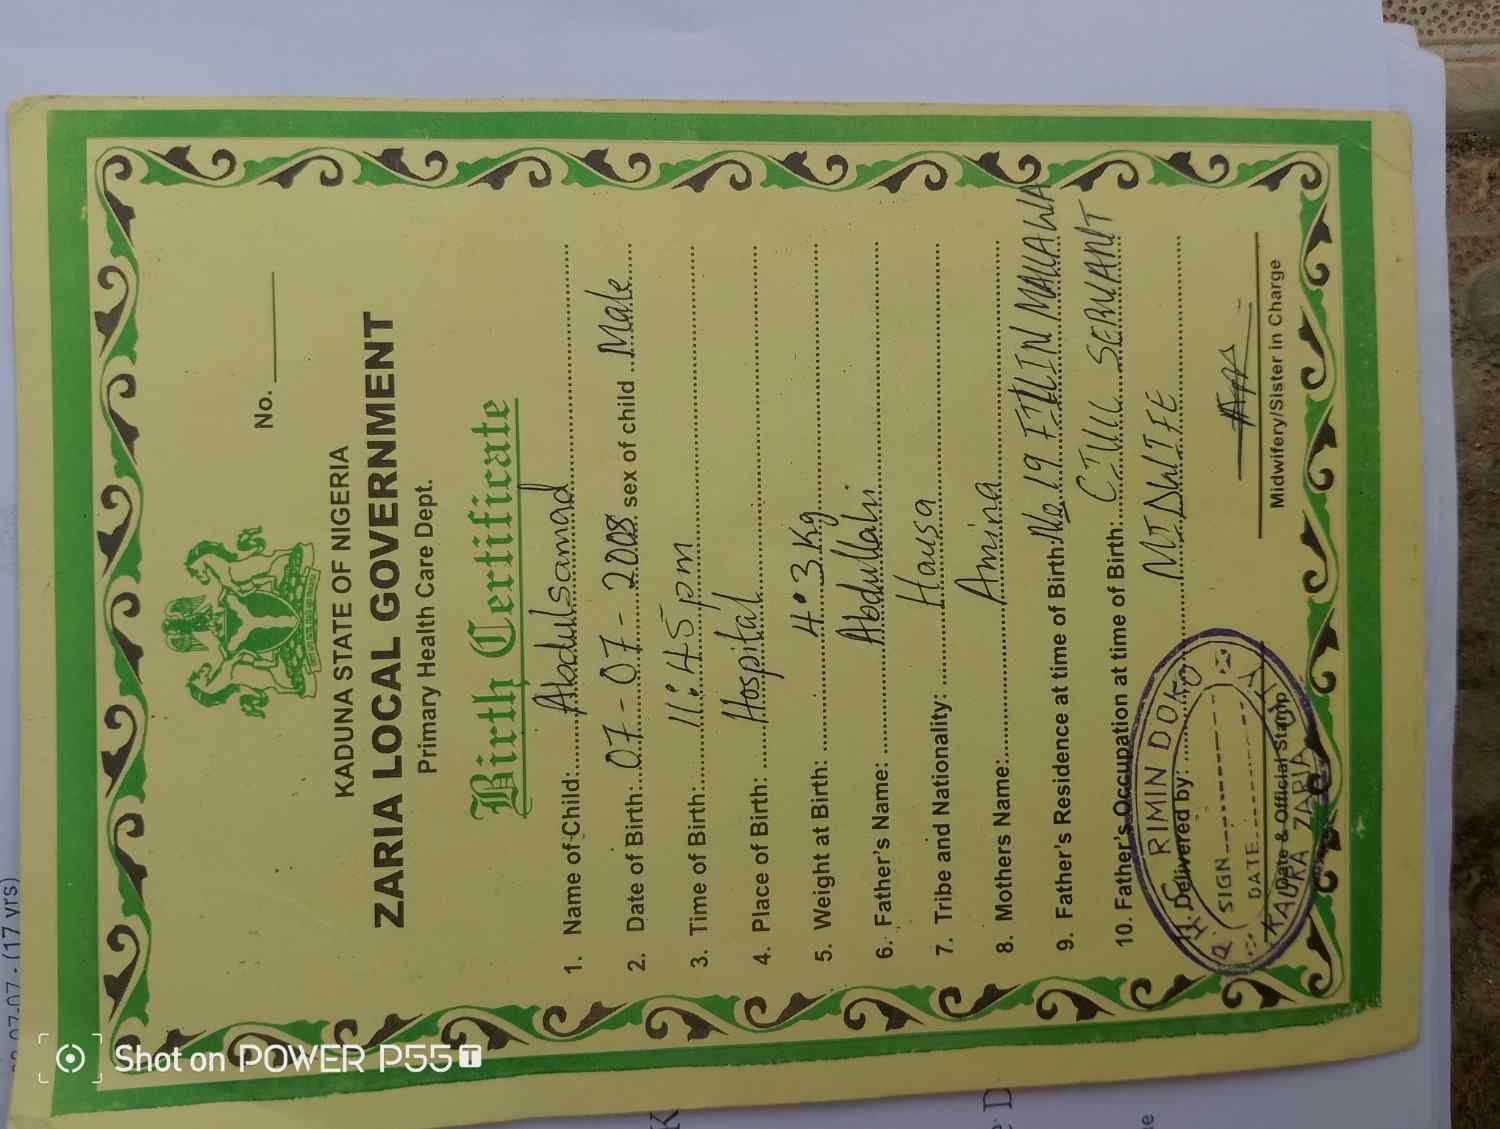 No.
KADUNA STATE OF NIGERIA
ZARIA LOCAL GOVERNMENT
Primary Health Care Dept.
Birth Certificate
1. Name of Child: Abdulsamad
2. Date of Birth: 07-07-2008 sex of child Male
3. Time of Birth: 11:45pm
4. Place of Birth: Hospital
5. Weight at Birth: 4.3kg
6. Father's Name: Abdullahi
7. Tribe and Nationality: Hausa
8. Mothers Name: Amina
9. Father's Residence at time of Birth: No 19 FILIN MALLAWA
10. Father's Occupation at time of Birth: CIVIL SERVANT
11. Delivered by: MIDWIFE
P.H.C RIMIN DOKO
SIGN
DATE
KAURA ZARIA
Date & Official Stamp
Midwifery/Sister in Charge
07-07- (17 yrs)
Shot on POWER P55 T